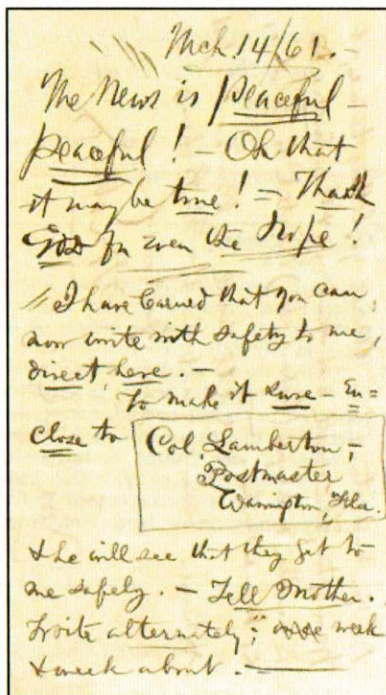 Mch. 14/61. —
The News is peaceful —
peaceful! — Oh that
it may be true! — Thank
God for even the hope!
I have learned that you can,
now write with safety to me,
direct, here. —
To make it sure — En=
close to
Col. Lamberton, —
Postmaster
Warrington, Fla.
& he will see that they get to
me safely. — Tell Mother.
Write alternately; week
& week about. —